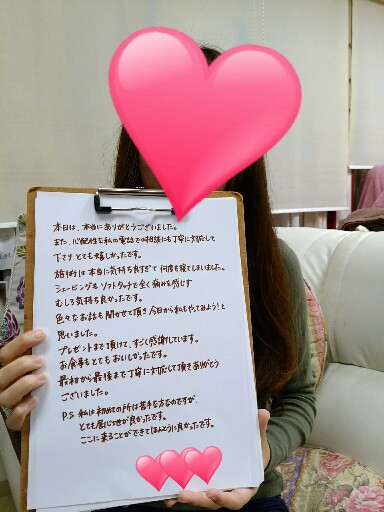 本日は、本当にありがとうございました。
また、心配性な私の電話での相談にも丁寧に対応して
下さりとても嬉しかったです。
施術は本当に気持ち良すぎて何度も寝てしまいました。
シェービングもソフトタッチで全く痛みを感じず
むしろ気持ち良かったです。
色々なお話も聞かせて頂き今日から私もやってみよう!と
思いました。
プレゼントまで頂けて、すごく感謝しています。
お食事もとてもおいしかったです。
最初から最後まで丁寧に対応して頂きありがとう
ございました。
P.S 私は初めての所は苦手な方なのですが、
とても居心地が良かったです。
ここに来ることができてほんとうに良かったです。